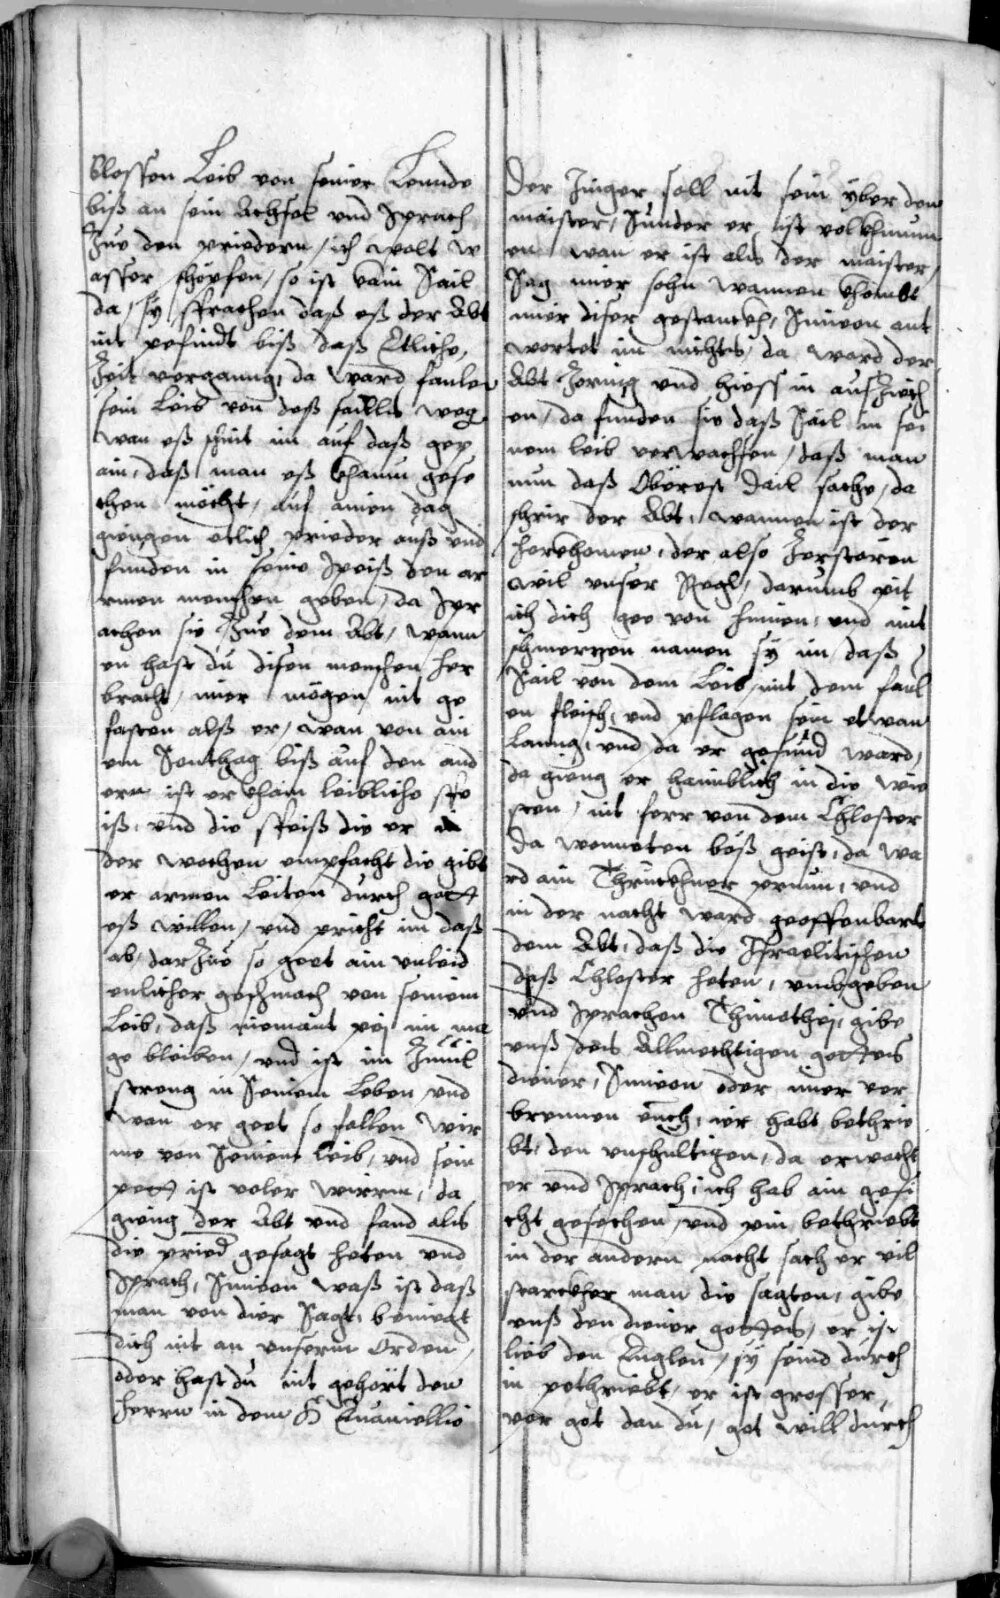 blossen Leib von seiner Lennde
biß an sein Achsel vnd sprach
Zue den briedern, ich wolt w
asser schöpfen, so ist kain Sail
da, sy sprachen daß eß der Abt
nit befindt biß daß Etliche,
Zeit verganng, da ward faulen
sein Leib von deß saills weg
wan eß schnit im auf daß gep
ain, daß man eß khaum gese
chen möcht, auf ainen dag
giengen etlich brieder auß vnd
funden in seine speiß den ar
rmen menschen geben, da spr
achen sie Zue dem Abt, wann
en hast du disen menschen her
bracht, mier mögen nit ge
fasten alß er, wan von ain
em Sonthag biß auf den and
ern ist er khain leibliche spe
iß, vnd die speiß die er in
der wochen empfacht die gibt
er armen Leiten durch gott
eß willen, vnd pricht im daß
ab, dar Zue so geet ain vnleid
enlicher geschmach von seinem
Leib, daß niemant pei im me
ge bleiben, vnd ist im Zuuil
streng in Seinem Leben vnd
wan er geet so fallen wir
me von Seinem leib, vnd sein
pett ist voler wirrm, da
gieng der Abt vnd fand als
die bried gesagt heten vnd
sprach, Simeon waß ist daß
man von dier Sagt, beniegt
dich nit an vnserm Orden,
oder hast du nit gehört den
herrn in dem H Euaniellio
Der Jinger soll nit sein yber den
maister, Sunder er ist volkhumm
en wan er ist als der maister,
Sag mier sohn wannen khombt
mier diser gestanckh, Simeon ant
wortet im nichts, da ward der
Abt Zornig vnd hiess in aus Ziech
en, da funden sie daß Sail in sei
nem leib verwachsen, daß man
nun daß Oberest dail sache, da
schrir der Abt, wannen ist der
herkhomen, der also Zerstören
wil vnser Regl, darumb pit
ich dich gee von hinnen, vnd mit
schmerzen namen sy im daß
Sail von dem Leib, mit dem faul
en fleisch, vnd pflagen sein etwan
lanng, vnd da er gesund ward,
da gieng er haimblich in die wie
sten, nit ferr von dem Chloster
Da wonneten böß geist, da wa
rd ain Thruckhner prunn, vnd
in der nacht ward geoffenbart
dem Abt, daß die Israelitischen
daß Chloster heten, vmbgeben
vnd sprachen Thimothei, gibe
vnß deß Allmechtigen gottes
diener, Simeon oder mier ver
brennen euch, ier habt bethrie
bt, den vnschultigen, da erwacht
er vnd sprach, ich hab ain gesi
cht gesechen, vnd pin bethriebt
in der andern nacht sach er vil
starckher man die sagten, gibe
vnß den diener gottes, er ist
lieb den Englen, sy seind durch
in pethriebt, er ist grosser,
vor got dan du, got will durch